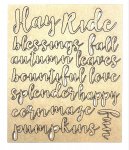 Hay Ride
blessings fall
autumn leaves
bountiful love
splender happy
corn maze fun
pumpkins